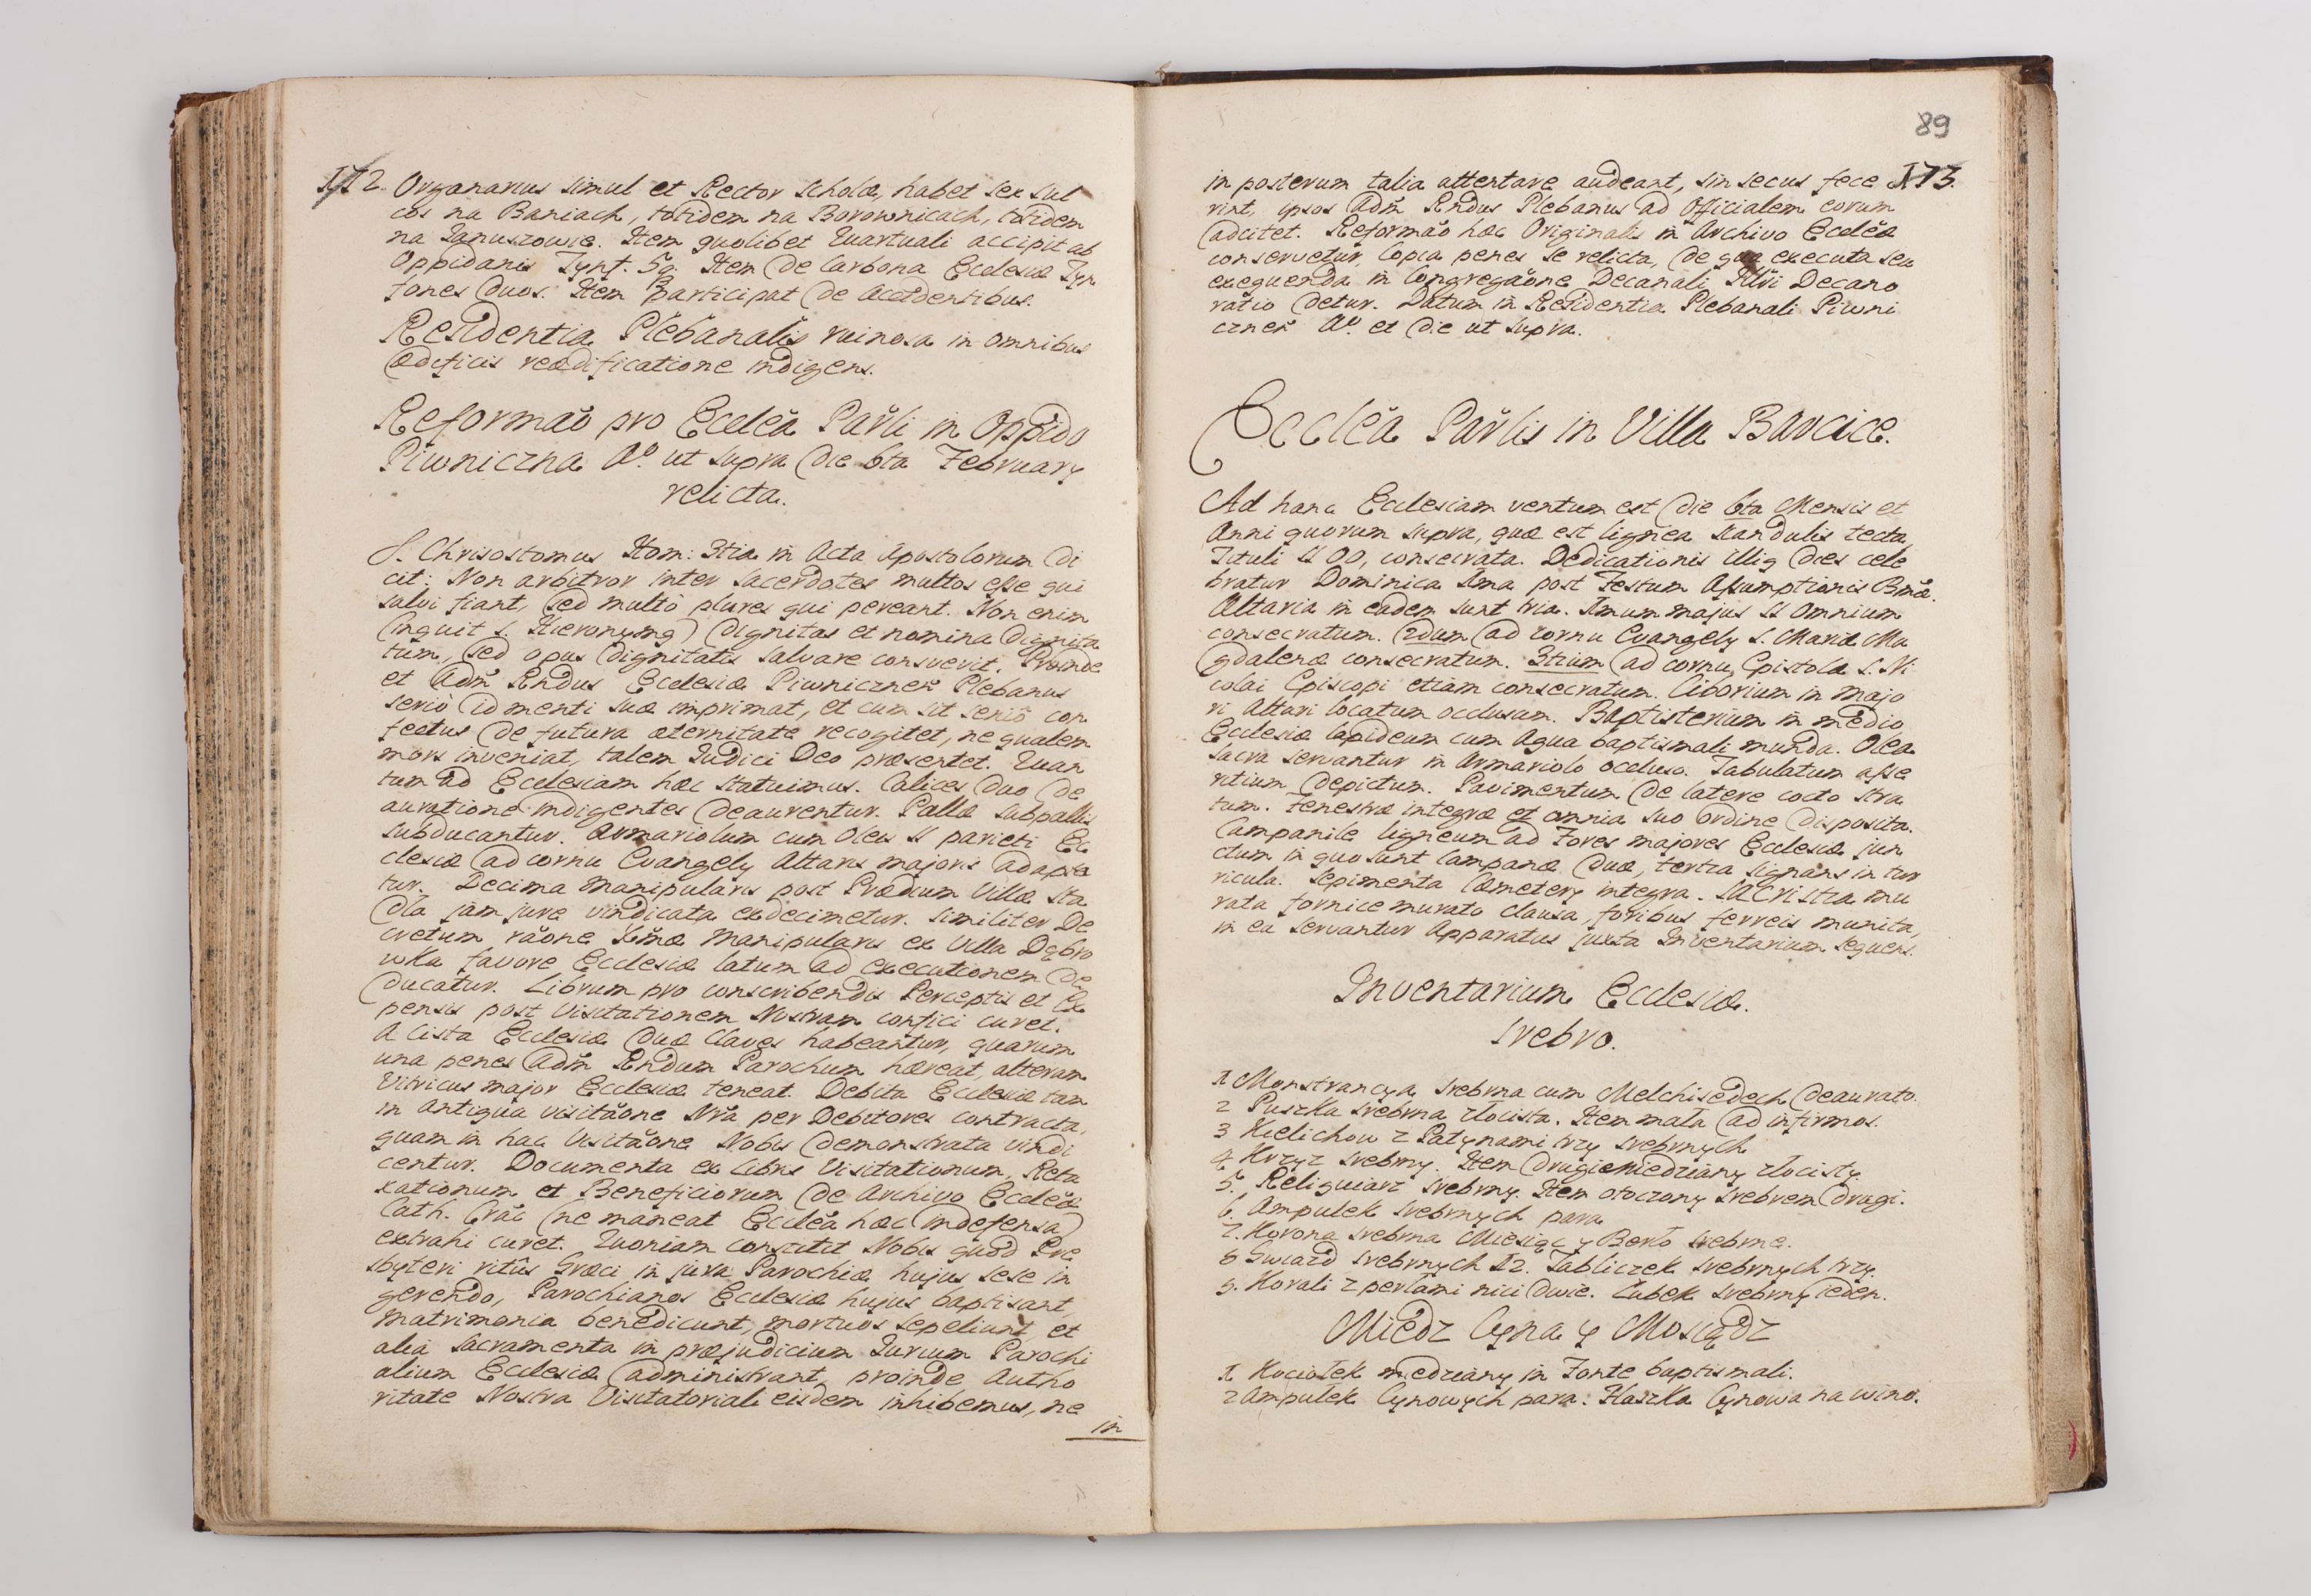 172. Organarius simul et Rector Scholæ, habet sex sul
cos na Baniach, totidem na Borownicach, totidem
na Januszowie. Item quolibet Quartuali accipit ab
Oppidanis Tynf. 5q. Item de Carbona Ecclesiæ Tyn
fones duos. Item participat de Accidentibus.
Residentia Plebanalis ruinosa in omnibus
ædificiis reædificatione indigens.
Reformaõ pro Ecclẽa Par̃li in Oppido
Piwniczna Aº ut supra die 6ta February
relicta.
S. Chrisostomus Hom: 3tia in Acta Apostolorum di
cit: Non arbitror inter Sacerdotes multos esse qui
salvi fiant, sed multò plures qui pereant. Non enim
(inquit S. Hieronymq) dignitas et nomina dignita
tum, sed opus dignitatis salvare consuevit. Proinde
et Adm̃ Rndus Ecclesiæ Piwniczneñ Plebanus
seriò id menti suæ imprimat, et cum sit seniõ con
fectus de futura æternitate recogitet, ne qualem
mors inveniat, talem Judici Deo præsentet. Quan
tum ad Ecclesiam hæc statuimus. Calices duo de
auratione indigentes deaurentur. Pallæ subpallis
subducantur. Armariolum cum Oleis SS parieti Ec
clesiæ ad cornu Evangely Altaris majoris adapte
tur. Decima Manipularis post Prædium Villæ Sta
dła jam jure vindicata exdecimetur. Similiter De
cretum rãone Xm̃æ Manipularis ex Villa Dąbro
wka favore Ecclesiæ latum ad executionem de
ducatur. Librum pro conscribendis Perceptis et Ex
pensis post Visitationem Nostram confici curet.
A Cista Ecclesiæ duæ Claves habeantur, quarum
una penes Adm̃ Rndum Parochum hæreat, alteram
Vitricus major Ecclesiæ teneat. Debita Ecclesiæ tam
in antiqua visitãone Nr̃a per Debitores contracta,
quam in hac Visitãone Nobis demonstrata vindi
centur. Documenta ex Libris Visitationum, Reta
xationum et Beneficiorum de Archivo Ecclẽæ
Cath. Crãc (ne maneat Ecclẽa hæc indefensa)
extrahi curet. Quoniam constitit Nobis quòd Pre
sbyteri ritûs Græci in jura Parochiæ hujus sese in
gerendo, Parochianos Ecclesiæ hujus baptisant,
Matrimonia benedicunt, mortuos sepeliunt, et
alia Sacramenta in præjudicium Jurium Parochi
alium Ecclesiæ administrant, proinde Autho
ritate Nostra Visitatoriali eisdem inhibemus, ne
in
89
173.
in posterum talia attentare audeant, sin secus fece
rint, ipsos Adm̃ Rndus Plebanus ad Officialem eorum
adcitet. Reformaõ hæc Originalis in Archivo Ecclẽæ
conservetur, Copia penes se relicta, de qua executa seu
exequenda in Congregãone Decanali Illr̃i Decano
ratio detur. Datum in Residentia Plebanali Piwni
czneñ Aº et die ut supra.
Ecclẽa Par̃lis in Villa Barcice.
Ad hanc Ecclesiam ventum est die 6ta Mensis et
Anni quorum supra, quæ est lignea Scandulis tecta,
Tituli SS OO, consecrata. Dedicationis illiq dies cele
bratur Dominica Ima post Festum Assumptionis Bmæ.
Altaria in eadem sunt tria. Imum majus SS Omnium
consecratum. 2dum ad cornu Evangely S. Mariæ Ma
gdalenæ consecratum. 3tium ad cornu Epistolæ S. Ni
colai Episcopi etiam consecratum. Ciborium in majo
ri Altari locatum occlusum. Baptisterium in medio
Ecclesiæ lapideum cum Aqua baptismali munda. Olea
Sacra servantur in Armariolo occluso. Tabulatum asse
ritium depictum. Pavimentum de latere cocto stra
tum. Fenestræ integræ et omnia suo ordine disposita.
Campanile ligneum ad Fores majores Ecclesiæ jun
ctum in quo sunt Campanæ duæ, tertia signans in tur
ricula. Sepimenta Cæmetery integra. Sacristia mu
rata fornice murato clausa, foribus ferreis munita,
in ea servantur Apparatus juxta Inventarium sequens.
Inventarium Ecclesiæ.
Srebro.
1 Monstrancya srebrna cum Melchisedech deaurato.
2 Puszka srebrna złocista. Item mała ad infirmos.
3 Kielichow z Patynami trzy srebrnych
4 Krzyz srebrny. Item drugi Miedziany złocisty.
5. Reliquiarz srebrny. Item otoczony srebrem drugi.
6. Ampułek srebrnych para
7. Korona srebrna Miesiąc y Berło srebrne.
8 Gwiazd srebrnych 12. Tabliczek srebrnych trzy.
9. Korali z perłami nici dwie. Łubek srebrny ieden.
Miedz Cyna y Mosiądz
1 Kociołek miedziany in Fonte baptismali.
2 Ampułek Cynowych para. Flaszka Cynowa na wino.